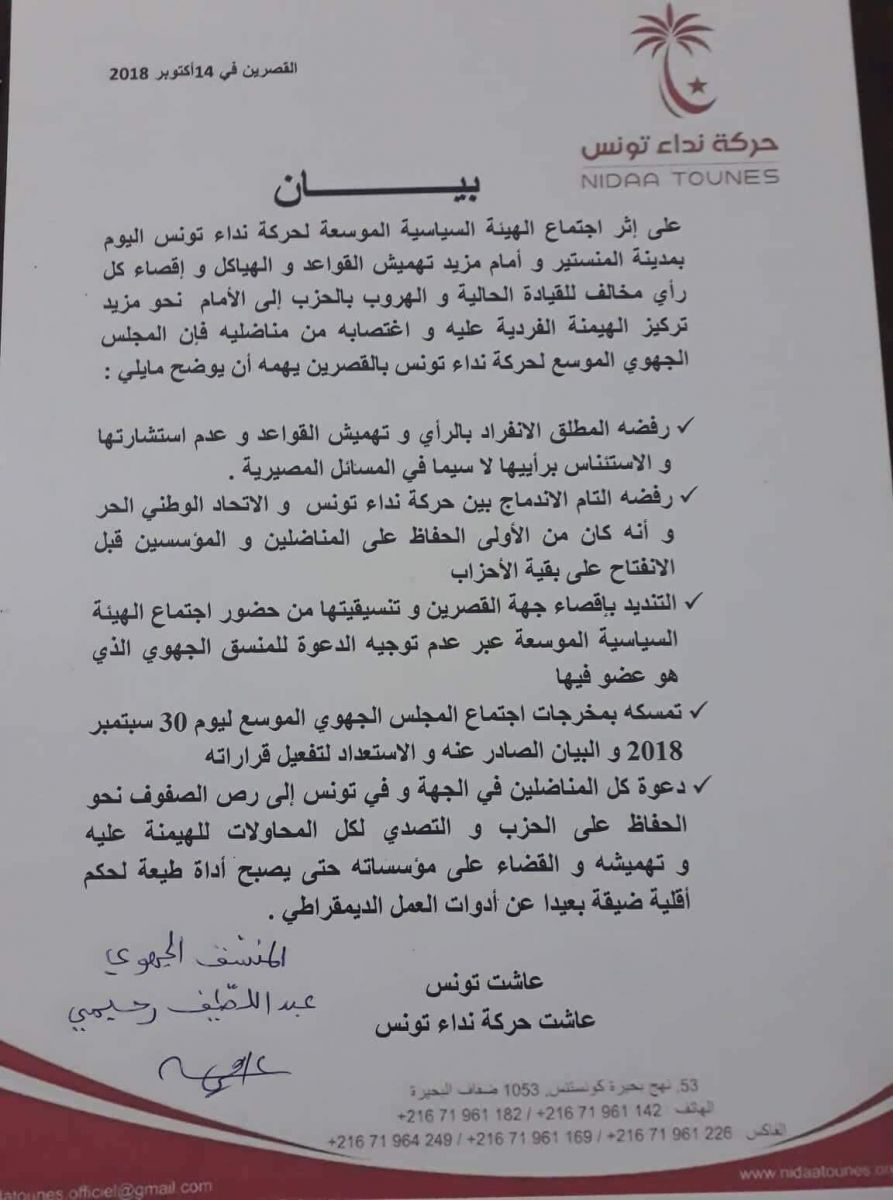 القصرين في 14أكتوبر 2018
حركة نداء تونس
NIDAA TOUNES
بيـــــــــــان
على إثر اجتماع الهيئة السياسية الموسعة لحركة نداء تونس اليوم
بمدينة المنستير و أمام مزيد تهميش القواعد و الهياكل و إقصاء كل
رأي مخالف للقيادة الحالية و الهروب بالحزب إلى الأمام نحو مزيد
تركيز الهيمنة الفردية عليه و اغتصابه من مناضليه فإن المجلس
الجهوي الموسع لحركة نداء تونس بالقصرين يهمه أن يوضح مايلي :
✓ رفضه المطلق الانفراد بالرأي و تهميش القواعد و عدم استشارتها
و الاستئناس برأييها لا سيما في المسائل المصيرية .
✓ رفضه التام الاندماج بين حركة نداء تونس و الاتحاد الوطني الحر
و أنه كان من الأولى الحفاظ على المناضلين و المؤسسين قبل
الانفتاح على بقية الأحزاب
✓ التنديد بإقصاء جهة القصرين و تنسيقيتها من حضور اجتماع الهيئة
السياسية الموسعة عبر عدم توجيه الدعوة للمنسق الجهوي الذي
هو عضو فيها
✓ تمسكه بمخرجات اجتماع المجلس الجهوي الموسع ليوم 30 سبتمبر
2018 و البيان الصادر عنه و الاستعداد لتفعيل قراراته
✓ دعوة كل المناضلين في الجهة و في تونس إلى رص الصفوف نحو
الحفاظ على الحزب و التصدي لكل المحاولات للهيمنة عليه
و تهميشه و القضاء على مؤسساته حتى يصبح أداة طيعة لحكم
أقلية ضيقة بعيدا عن أدوات العمل الديمقراطي .
المنسق الجهوي
عبد اللطيف رحيمي
عاشت تونس
عاشت حركة نداء تونس
53, نهج بحيرة كونستنس, 1053 ضفاف البحيرة
الهاتف : +216 71 961 182 / +216 71 961 142
الفاكس : +216 71 964 249 / +216 71 961 169 / +216 71 961 226
www.nidaatounes.or
atounes.officiel@gmail.com